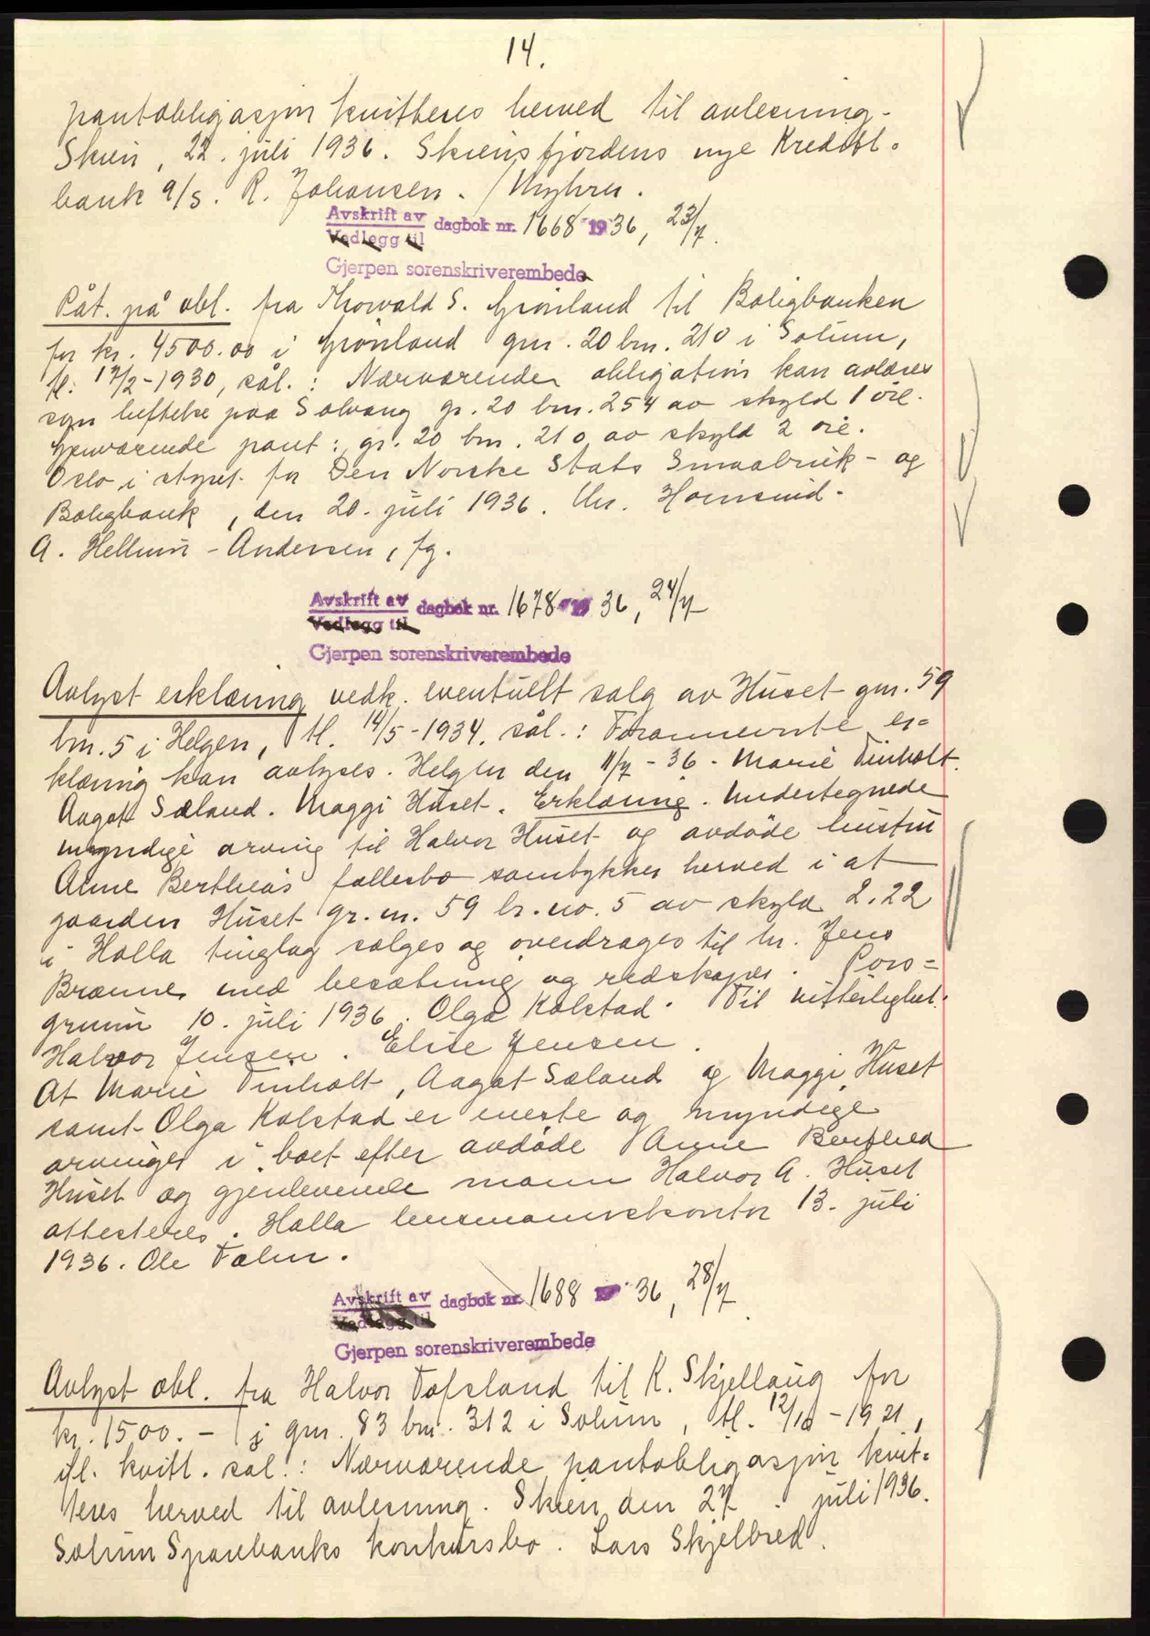 14.
pantobligasjon kvitteres herved til avlesning.
Skien, 22. juli 1936. Skiensfjordens nye Kredit-
bank a/s. R. Johansen. / Myhre.
Avskrift av dagbok nr. 1668 1936, 23/7.
Vedlegg til
Gjerpen sorenskriverembede
Påt. på obl. fra Thorvald S. Grönland til Boligbanken
for kr. 4500.00 i Grönland gnr. 20 bnr. 210 i Solum,
tl. 17/2-1930, sål.: Nærværende obligation kan avlæses
som heftelse paa Solvang gr. 20 bnr. 254 av skyld 1 öre.
Gjenværende pant: gr. 20 bnr. 210 av skyld 2 öre.
Oslo i styret for Den Norske Stats Smaabruk- og
Boligbank, den 20. juli 1936. Chr. Hornsrud.
A. Hellum-Andersen, fg.
Avskrift av dagbok nr. 1678 1936, 24/7
Vedlegg til
Gjerpen sorenskriverembede
Avlyst erklæring vedk. eventuelt salg av Huset gnr. 59
bnr. 5 i Helgen, tl. 14/5-1934. sål.: Forannevnte er-
klæring kan avlyses. Helgen den 11/7-36. Marie Tinholt.
Aagot Sæland. Maggi Huset. Erklæring. Undertegnede
myndige arving til Halvor Huset og avdöde hustru
Anne Berthea's fellesbo samtykker herved i at
gaarden Huset gr. nr. 59 br. no. 5 av skyld 2.22
i Holla tinglag sælges og overdrages til hr. Jens
Brænne med besætning og redskaper. Pors-
grunn 10. juli 1936. Olga Kolstad. Til vitterlighet:
Halvor Jensen. Elise Jensen.
At Marie Tinholt, Aagot Sæland og Maggi Huset
samt Olga Kolstad er eneste og myndige
arvinger i boet efter avdöde Anne Berthea
Huset og gjenlevende mann Halvor A. Huset
attesteres. Holla lensmannskontor 13. juli
1936. Ole Dalen.
Avskrift av dagbok nr. 1688 1936, 28/7.
Vedlegg til
Gjerpen sorenskriverembede
Avlyst obl. fra Halvor Tofsland til K. Skjellaug for
kr. 1500.- i gnr. 83 bnr. 312 i Solum, tl. 12/10-1921,
ifl. kvitt. sål.: Nærværende pantobligasjon kvit-
teres herved til avlesning. Skien den 27. juli 1936.
Solum Sparebanks konkursbo. Lars Skjelbred.